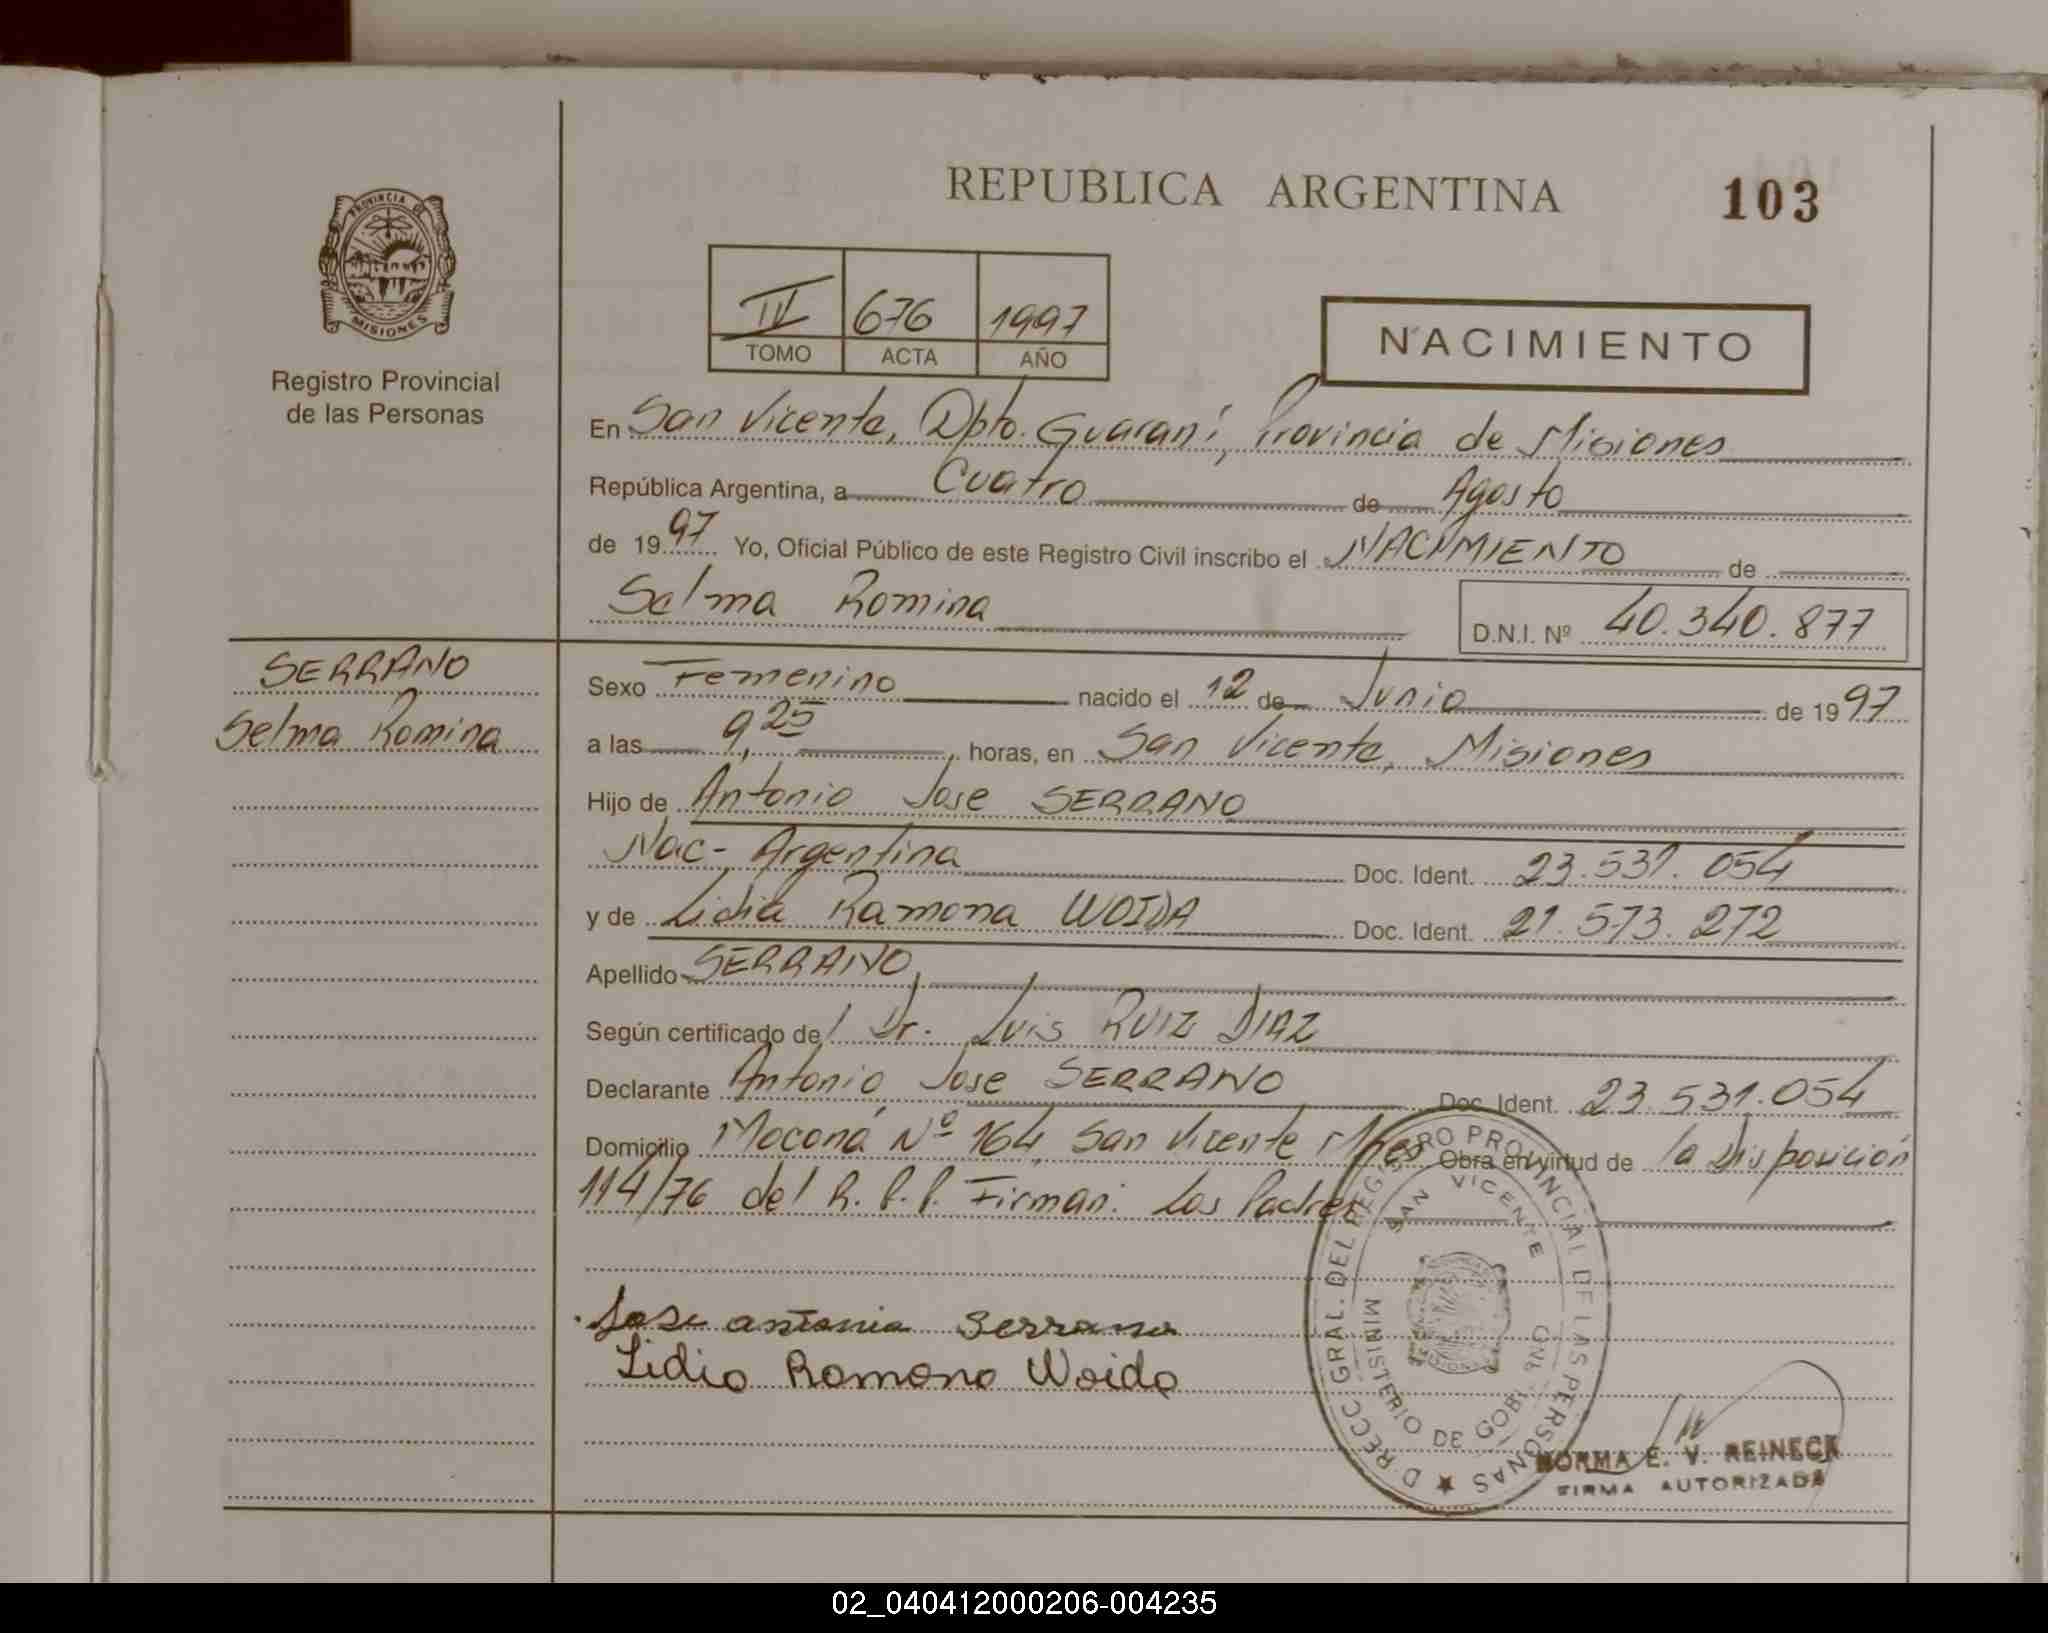 REPUBLICA ARGENTINA
103
PROVINCIA DE
MISIONES
Registro Provincial
de las Personas
IV 676 1997
TOMO ACTA AÑO
NACIMIENTO
En San Vicente, Dpto. Guaraní, Provincia de Misiones
República Argentina, a Cuatro de Agosto
de 1997 Yo, Oficial Público de este Registro Civil inscribo el NACIMIENTO de
Selma Romina
D.N.I. Nº 40.340.877
SERRANO
Selma Romina
Sexo Femenino nacido el 12 de Junio de 1997
a las 9,25 horas, en San Vicente, Misiones
Hijo de Antonio Jose SERRANO
Nac- Argentina Doc. Ident. 23.531.054
y de Lidia Ramona WOIDA Doc. Ident. 21.573.272
Apellido SERRANO
Según certificado del Dr. Luis RUIZ DIAZ
Declarante Antonio Jose SERRANO Doc. Ident. 23.531.054
Domicilio Moconá Nº 164, San Vicente Mnes Obra en virtud de la Disposición
114/76 del R.P.P. Firman: Los Padres
Jose antonio serrano
Lidia Ramona Woida
DIRECC GRAL. DEL REGISTRO PROVINCIAL DE LAS PERSONAS
SAN VICENTE
MINISTERIO DE GOBI
NORMA E. V. REINECK
FIRMA AUTORIZADA
02_040412000206-004235